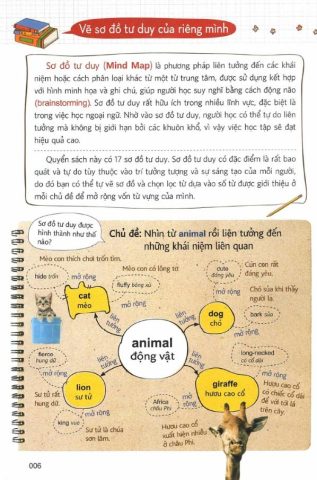 Vẽ sơ đồ tư duy của riêng mình
Sơ đồ tư duy (Mind Map) là phương pháp liên tưởng đến các khái
niệm hoặc cách phân loại khác từ một từ trung tâm, được sử dụng kết hợp
với hình minh họa và ghi chú, giúp người học suy nghĩ bằng cách động não
(brainstorming). Sơ đồ tư duy rất hữu ích trong nhiều lĩnh vực, đặc biệt là
trong việc học ngoại ngữ. Nhờ vào sơ đồ tư duy, người học có thể tự do liên
tưởng mà không bị giới hạn bởi các khuôn khổ, vì vậy việc học tập sẽ đạt
hiệu quả cao.
Quyển sách này có 17 sơ đồ tư duy. Sơ đồ tư duy có đặc điểm là rất bao
quát và tự do tùy thuộc vào trí tưởng tượng và sự sáng tạo của mỗi người,
do đó bạn có thể tự vẽ sơ đồ và chọn lọc từ dựa vào số từ được giới thiệu ở
mỗi chủ đề để mở rộng vốn từ vựng của mình.
Sơ đồ tư duy được
hình thành như thế
nào?
Chủ đề: Nhìn từ animal rồi liên tưởng đến
những khái niệm liên quan
Mèo con thích chơi trốn tìm.
hide trốn
mở rộng
Mèo con có lông tơ.
fluffy bông xù
mở rộng
cat
mèo
liên
tưởng
cute
đáng yêu
Cún con rất
đáng yêu.
mở rộng
dog
chó
liên
tưởng
Chó sủa khi thấy
người lạ.
bark sủa
mở rộng
animal
động vật
fierce
hung dữ
mở rộng
lion
sư tử
liên
tưởng
Sư tử rất
hung dữ.
mở rộng
king vua
Sư tử là chúa
sơn lâm.
long-necked
có cổ dài
mở rộng
giraffe
hươu cao cổ
liên
tưởng
Africa
châu Phi
mở rộng
Hươu cao cổ
xuất hiện nhiều
ở châu Phi.
Hươu cao cổ
có chiếc cổ dài
để với tới lá
trên cây.
006